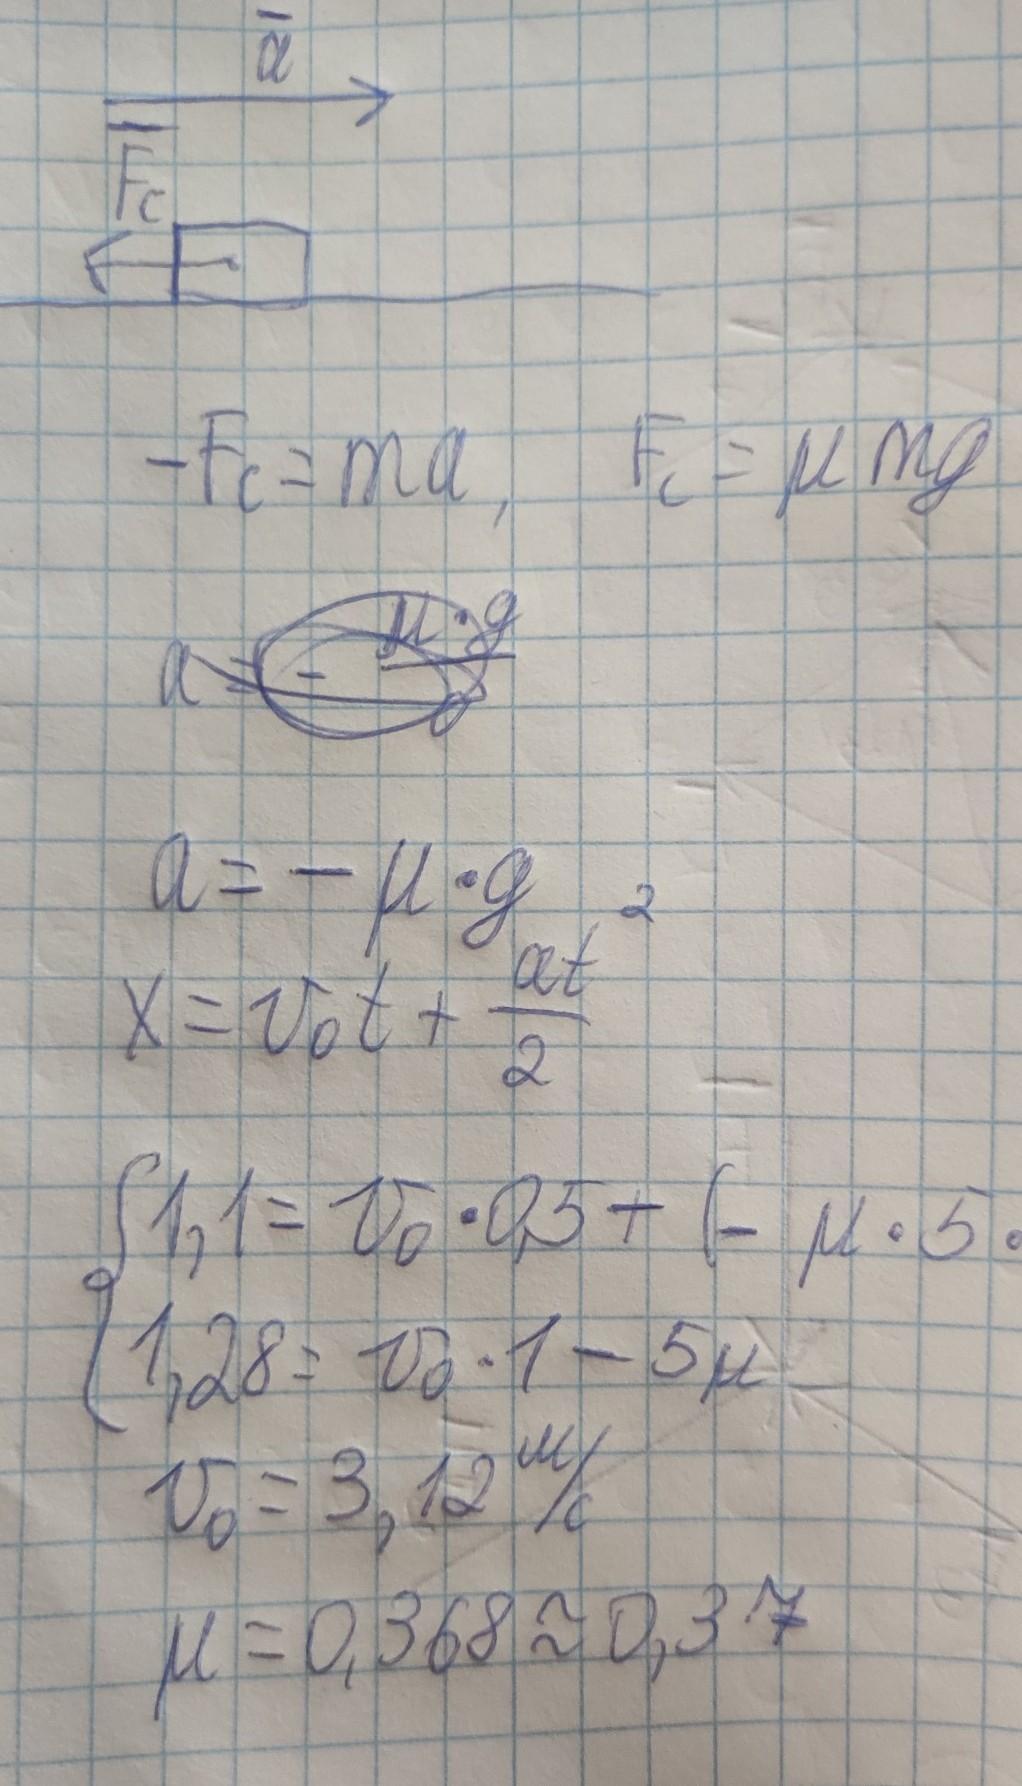 a̅
F̅c
-Fc = ma, Fc = μmg
a = - μ·g
a = - μ·g
x = v₀t + at²/2
{ 1,1 = v₀·0,5 + (- μ·5·
1,28 = v₀·1 - 5μ
v₀ = 3,12 м/с
μ = 0,368 ≈ 0,37